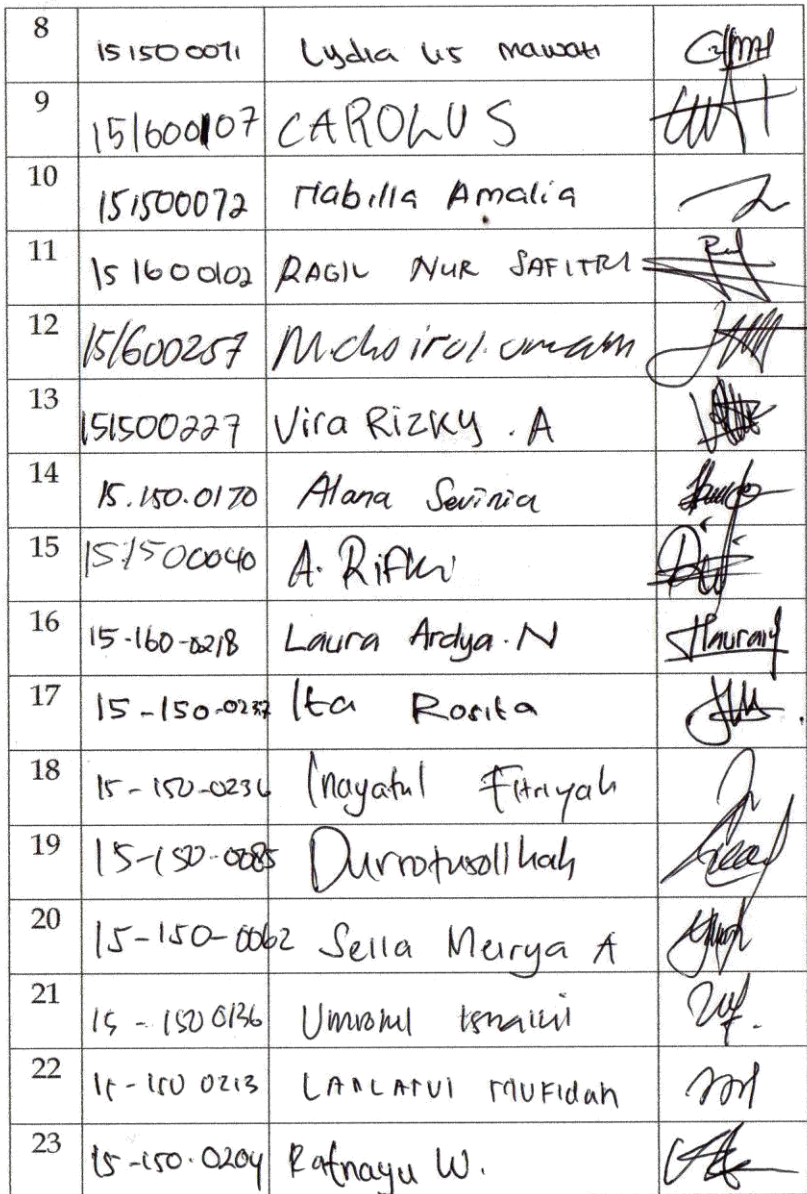 8 151500071 Lydia lis mawati
9 151600107 CAROLUS
10 151500072 Nabilla Amalia
11 151600102 RAGIL NUR SAFITRI
12 151600257 M.choirol.umam
13 151500227 Vira Rizky . A
14 15.150.0170 Alana Sevinia
15 151500040 A. Rifki
16 15-160-0218 Laura Ardya. N
17 15-150-0237 Ita Rosita
18 15-150-0236 Inayatul Fitriyah
19 15-150-0085 Durrotusollhah
20 15-150-0062 Sella Meirya A
21 15-150 0136 Umrotul Isnaini
22 15-150 0213 LAILATUL MUFIdah
23 15-150.0204 Ratnayu W.